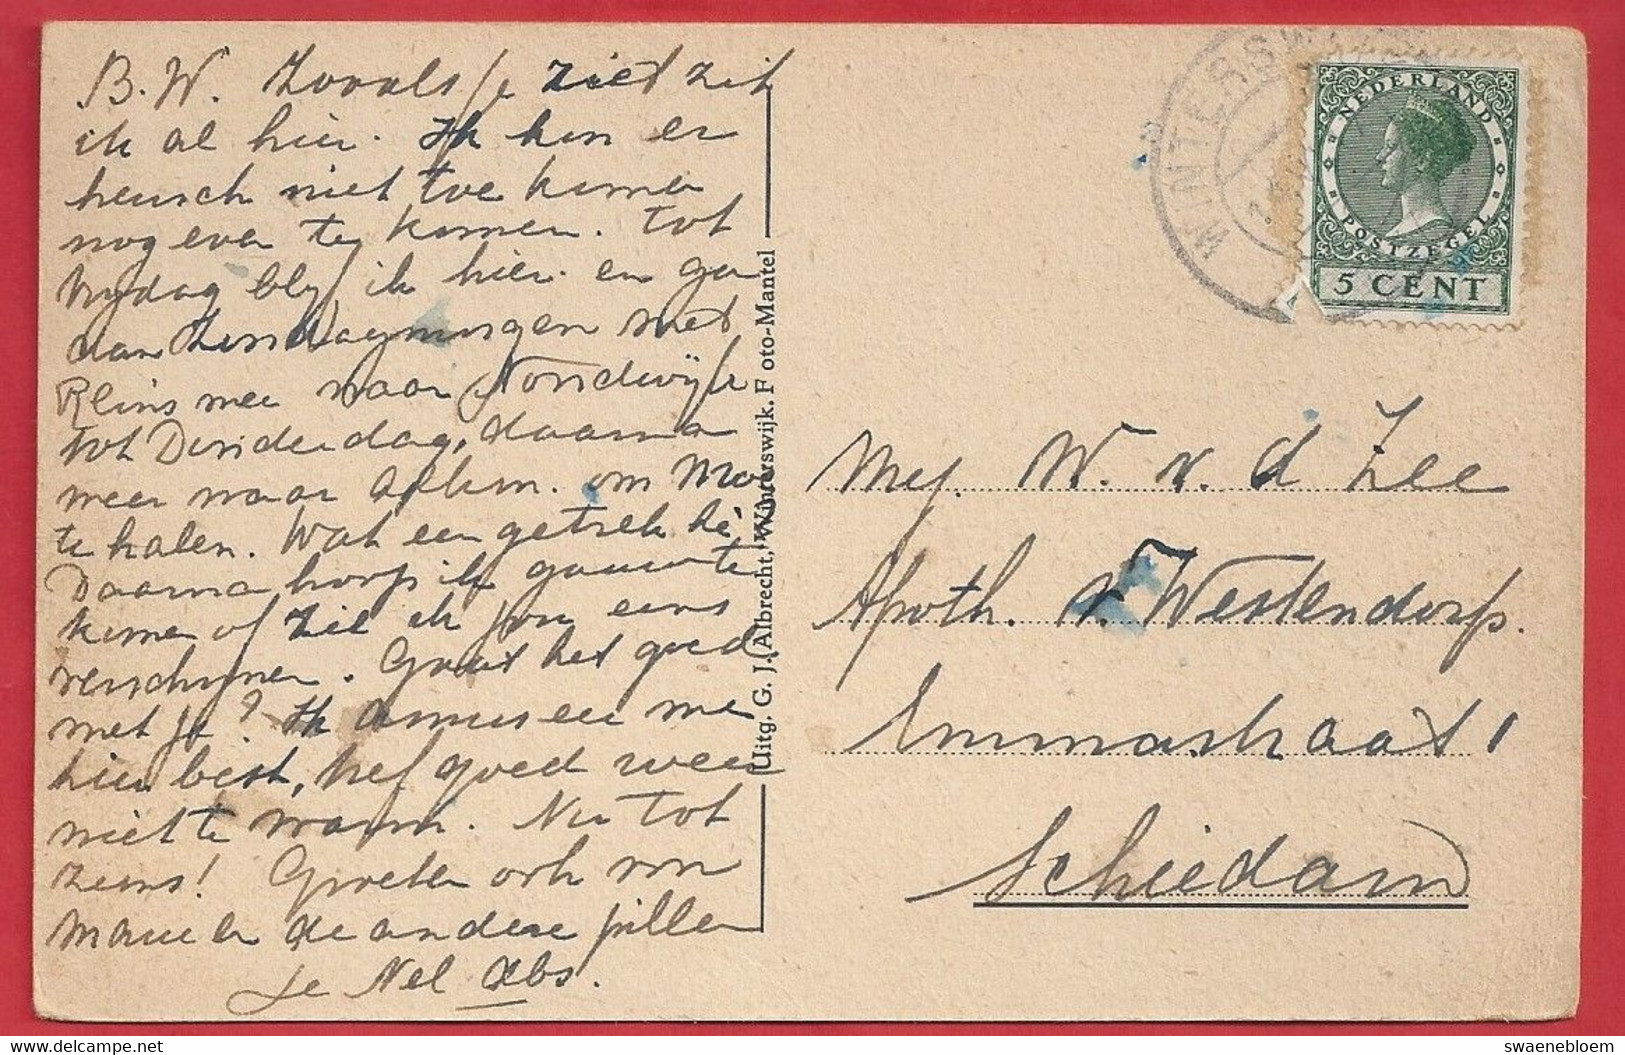 B.W. Zooals je ziet zit
ik al hier. Ik kon er
heusch niet toe komen
nog even te komen. Tot
Vrydag blyf ik hier en ga
dan Zondagmorgen met
Reins mee naar Noordwijk
tot Donderdag, daarna
meer naar om Moe
te halen. Wat een getrek hè
Daarna hoop ik gauw te
komen of zie ik jou eens
verschynen. Gaat het goed
met je? Ik amuseer me
hier best, hef goed weer
niet te warm. Nu tot
ziens! Groeten ook van
Marie en de andere pillen
Je Nel xbs.
Uitg. G. J. Albrecht, Winterswijk. Foto-Mantel
WINTERSWIJK
NEDERLAND
POSTZEGEL
5 CENT
Mej. W. v. d Zee
Apoth. v. Westendorp.
Emmastraat 1
Schiedam
swaenebloem at Delcampe.net